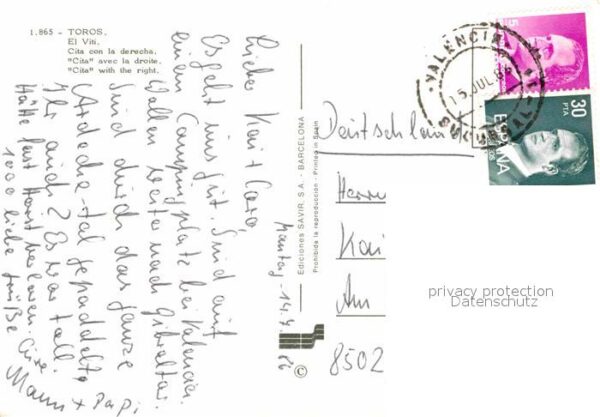 1.865 - TOROS.
El Viti.
Cita con la derecha.
"Cita" avec la droite.
"Cita" with the right.
Montag - 14.7.86
Liebe Kai + Caro,
Es geht uns gut. Sind auf
einem Campingplatz bei Valencia.
Wollen weiter nach Gibraltar.
Sind durch das ganze
Ardeche-tal gepaddelt
Ihr auch? Es war toll
Hätte fast Horst verloren.
1000 liebe Grüße Eure
Mami + Papi
Ediciones SAVIR, S.A. - BARCELONA
Prohibida la reproducción - Printed in Spain
©
VALENCIA
15 JUL 86
SUCURSAL
5
30
PTA
ESPAÑA
CORREOS
Deutschland
Herrn
Kai
Am
8502
privacy protection
Datenschutz